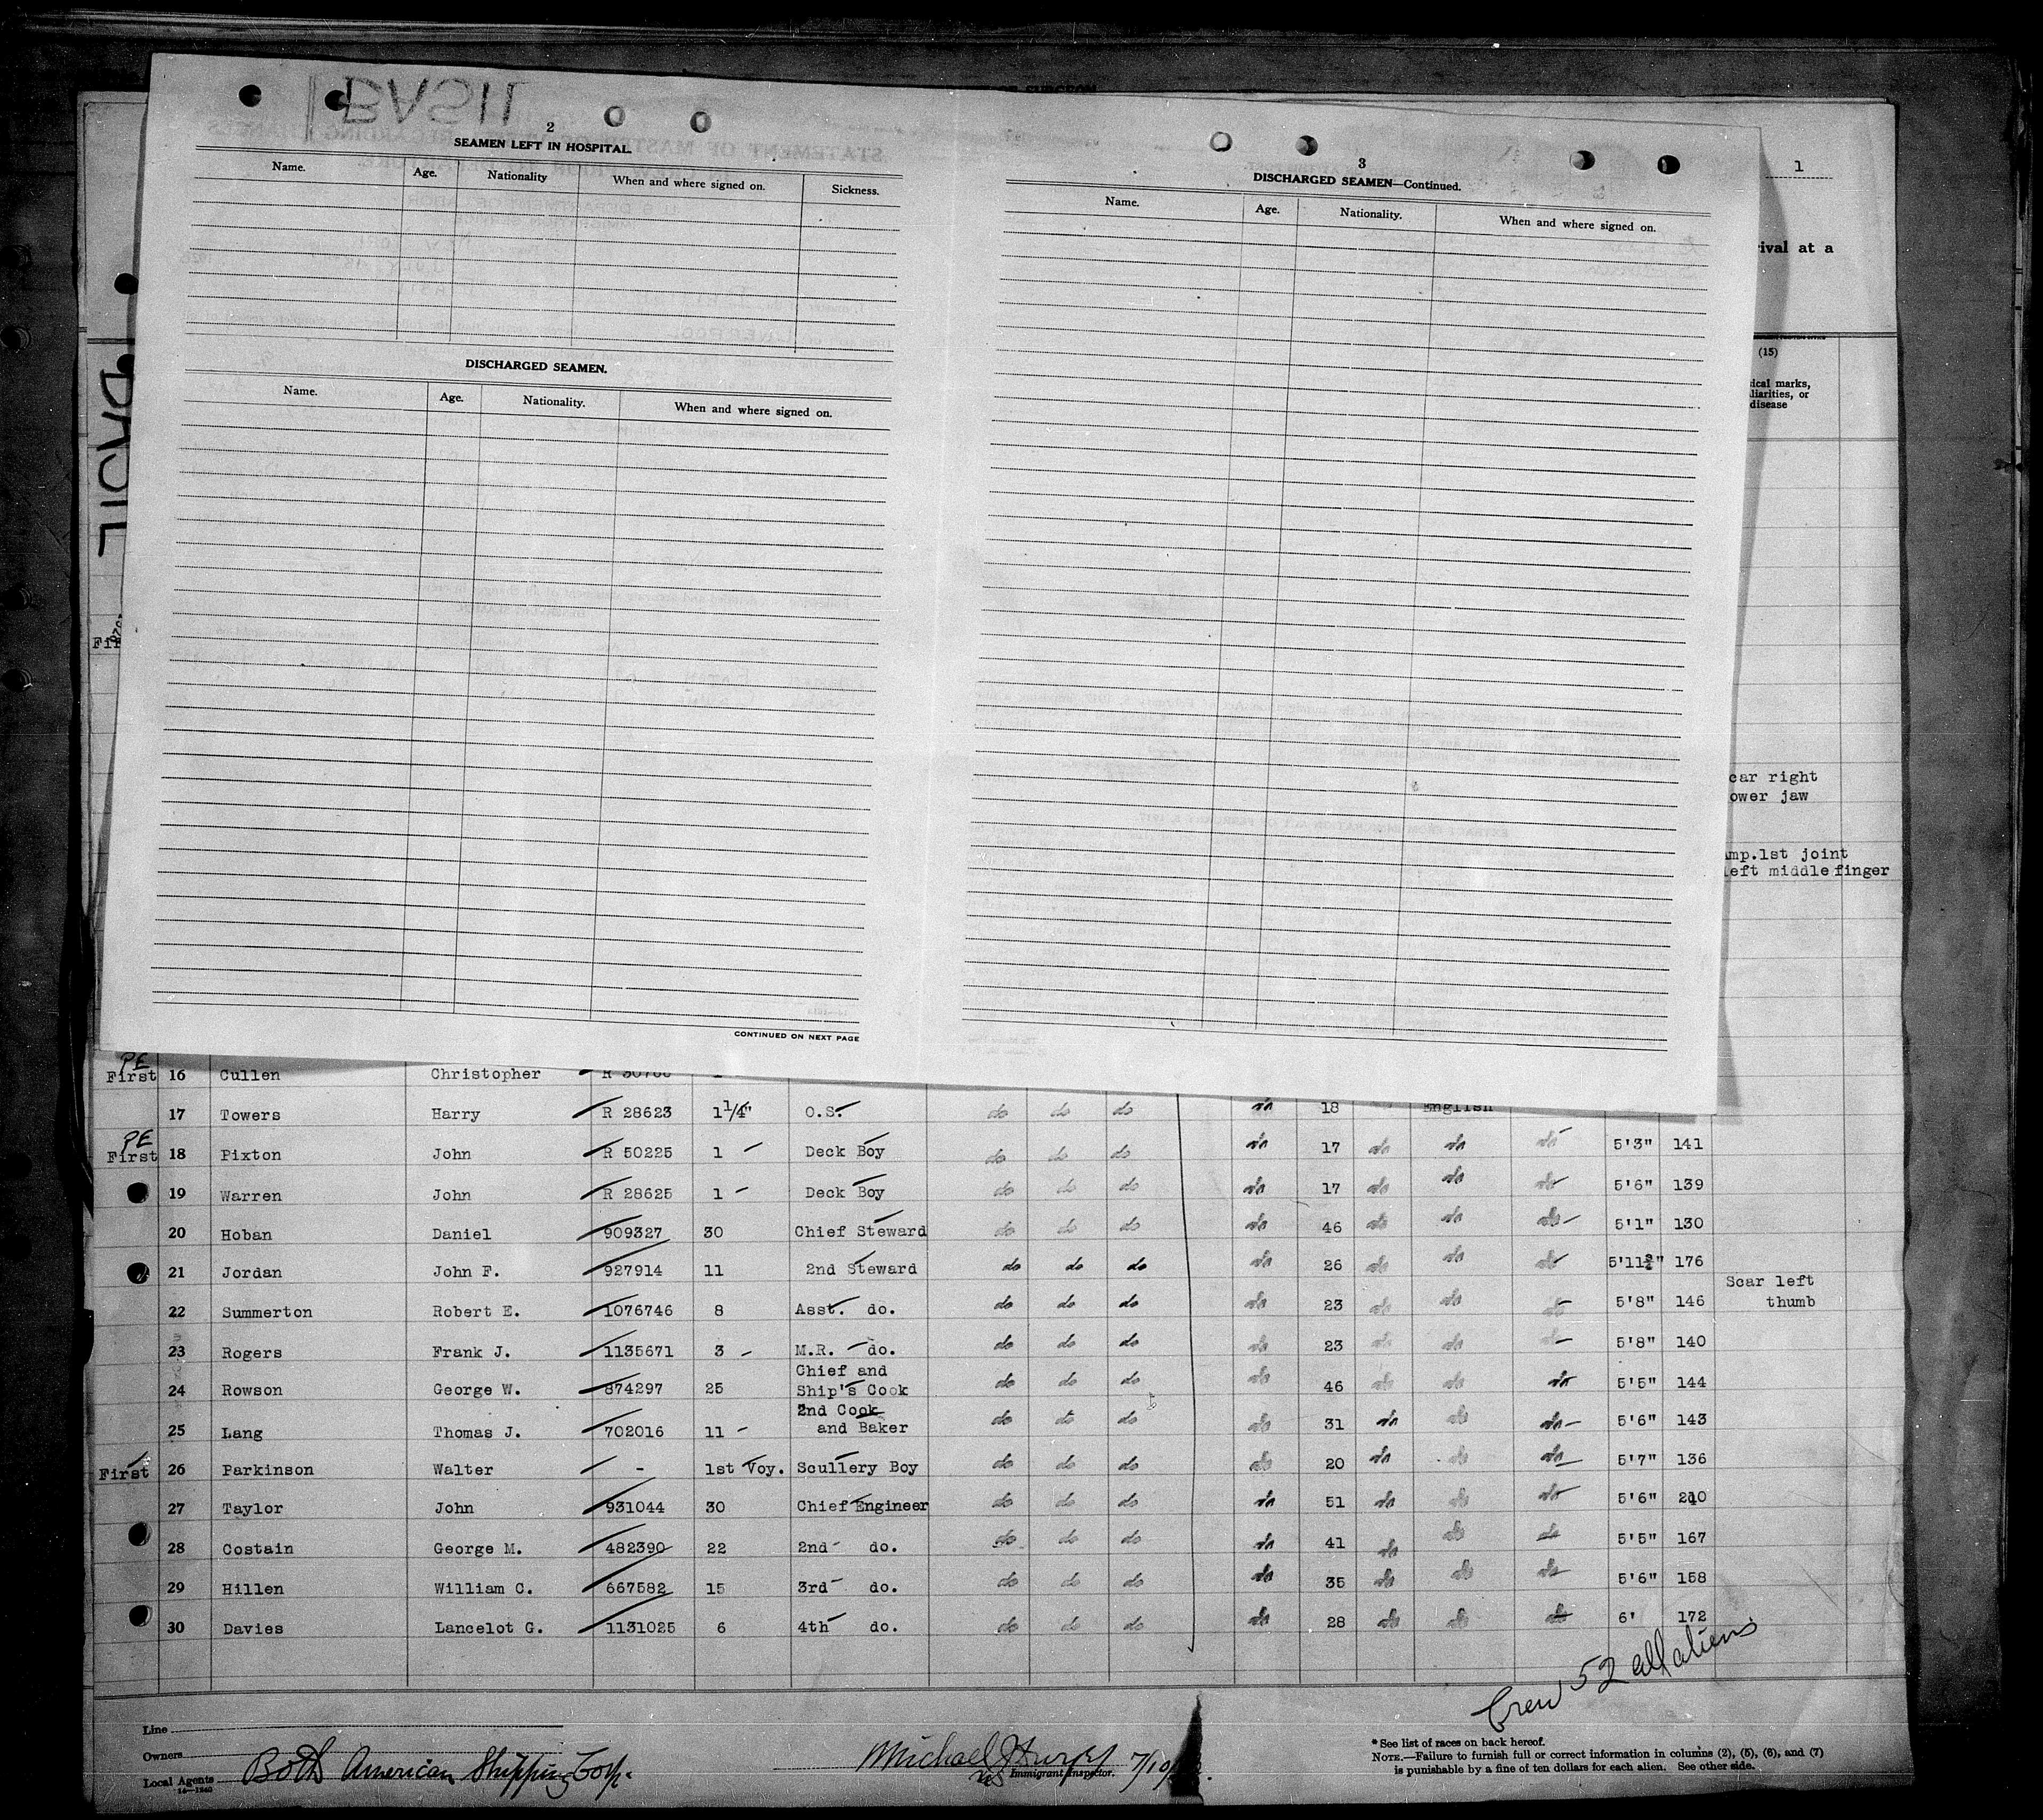 BASIL
2
SEAMEN LEFT IN HOSPITAL.
Name. Age. Nationality When and where signed on. Sickness.
DISCHARGED SEAMEN.
Name. Age. Nationality. When and where signed on.
CONTINUED ON NEXT PAGE
3
DISCHARGED SEAMEN—Continued.
Name. Age. Nationality. When and where signed on.
1
ival at a
(15)
ical marks,
liarities, or
disease
car right
ower jaw
mp.1st joint
left middle finger
PE
First 16 Cullen Christopher
17 Towers Harry R 28623 1 1/4" O.S. do do do do 18 English
PE
First 18 Pixton John R 50225 1 Deck Boy do do do do 17 do do do 5'3" 141
19 Warren John R 28625 1 Deck Boy do do do do 17 do do do 5'6" 139
20 Hoban Daniel 909327 30 Chief Steward do do do do 46 do do do 5'1" 130
21 Jordan John F. 927914 11 2nd Steward do do do do 26 do do do 5'11¾" 176
22 Summerton Robert E. 1076746 8 Asst. do. do do do do 23 do do do 5'8" 146 Scar left
thumb
23 Rogers Frank J. 1135671 3 M.R. do. do do do do 23 do do do 5'8" 140
24 Rowson George W. 874297 25 Chief and
Ship's Cook do do do do 46 do do do 5'5" 144
25 Lang Thomas J. 702016 11 2nd Cook
and Baker do do do do 31 do do do 5'6" 143
First 26 Parkinson Walter - 1st Voy. Scullery Boy do do do do 20 do do do 5'7" 136
27 Taylor John 931044 30 Chief Engineer do do do do 51 do do do 5'6" 210
28 Costain George M. 482390 22 2nd do. do do do do 41 do do do 5'5" 167
29 Hillen William C. 667582 15 3rd do. do do do do 35 do do do 5'6" 158
30 Davies Lancelot G. 1131025 6 4th do. do do do do 28 do do do 6' 172
Crew 52 all aliens
Line
Owners
Local Agents Booth American Shipping Corp.
16—1240
Michael J
Immigrant Inspector.
7/10
*See list of races on back hereof.
NOTE.—Failure to furnish full or correct information in columns (2), (5), (6), and (7)
is punishable by a fine of ten dollars for each alien. See other side.